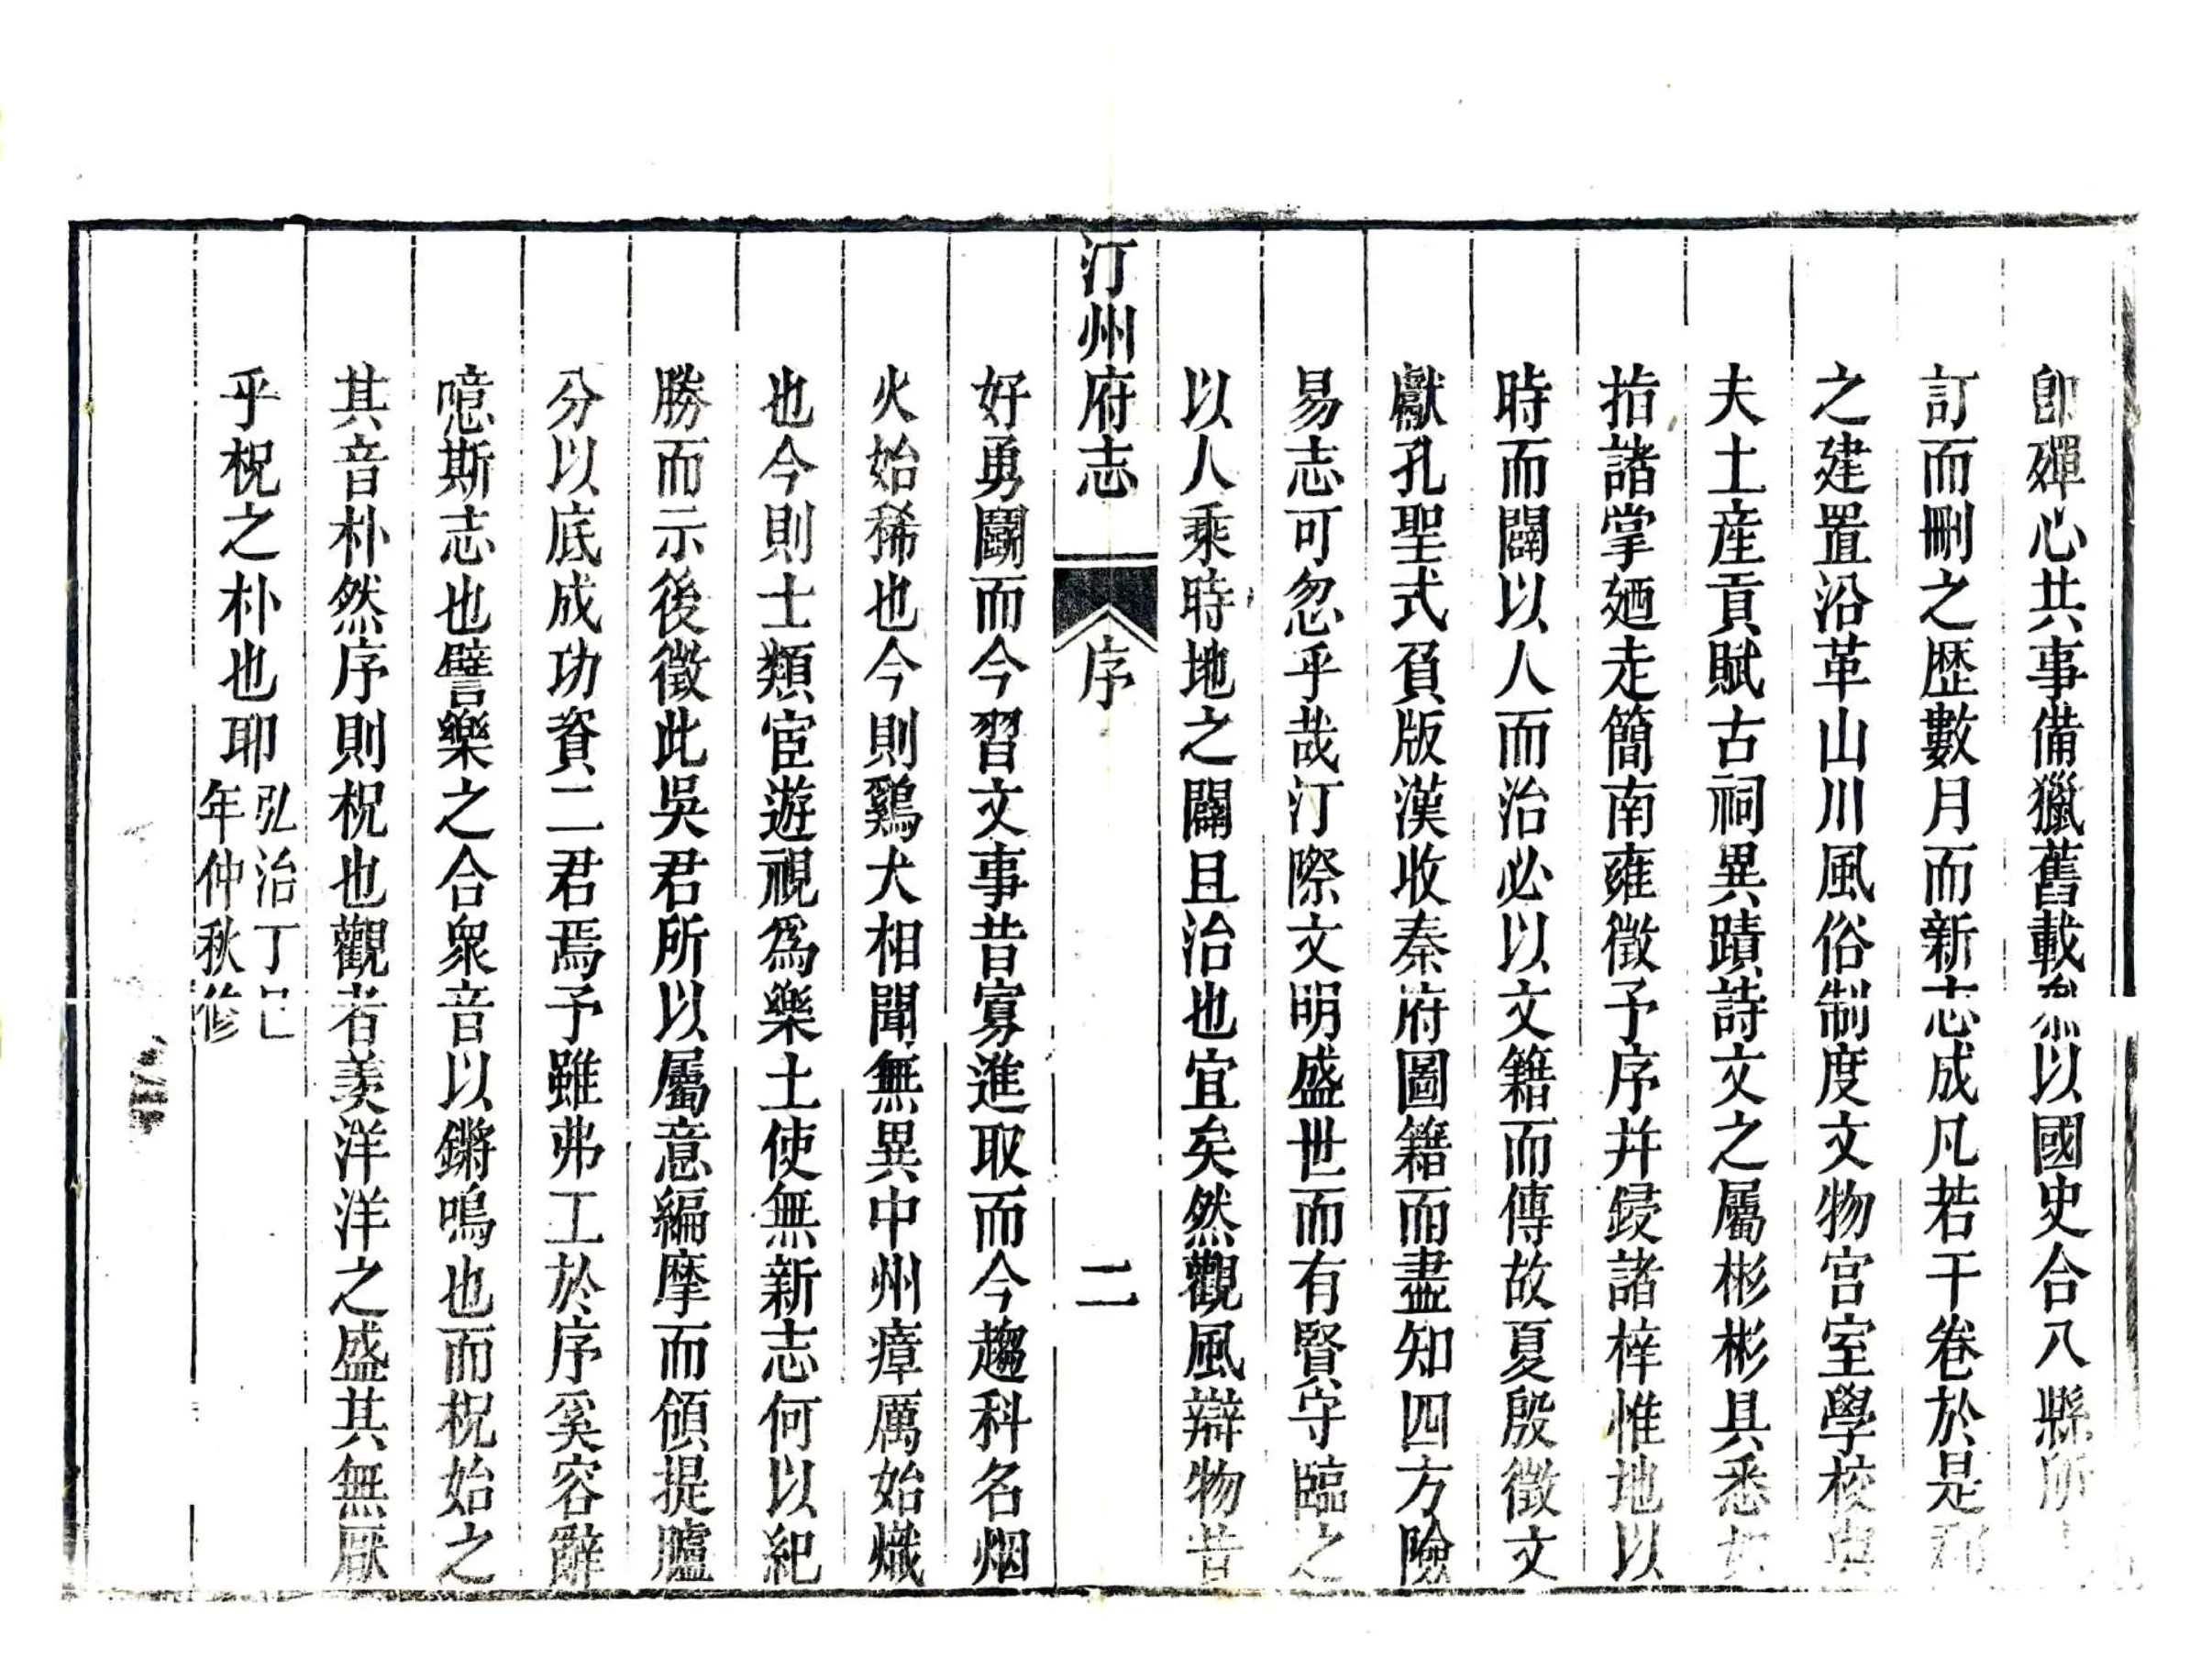 卽殫心共事備獵舊載叅以國史合八縣所
訂而刪之歷數月而新志成凡若干卷於是郡
之建置沿革山川風俗制度文物宫室學校與
夫土産貢賦古祠異蹟詩文之屬彬彬具悉如
指諸掌廼走簡南雍徵予序并鋟諸梓惟地以
時而闢以人而治必以文籍而傳故夏殷徵文
獻孔聖式負版漢收秦府圖籍而盡知四方險
易志可忽乎哉汀際文明盛世而有賢守臨之
以人乘時地之闢且治也宜矣然觀風辯物昔
汀州府志 序 二
好勇鬭而今習文事昔寡進取而今趨科名烟
火始稀也今則鷄犬相聞無異中州瘴厲始熾
也今則士類宦遊視爲樂土使無新志何以紀
勝而示後徵此吳君所以屬意編摩而頎提臚
分以底成功資二君焉予雖弗工於序奚容辭
噫斯志也譬樂之合衆音以鏘鳴也而柷始之
其音朴然序則柷也觀者羙洋洋之盛其無厭
乎柷之朴也耶弘治丁巳
年仲秋修